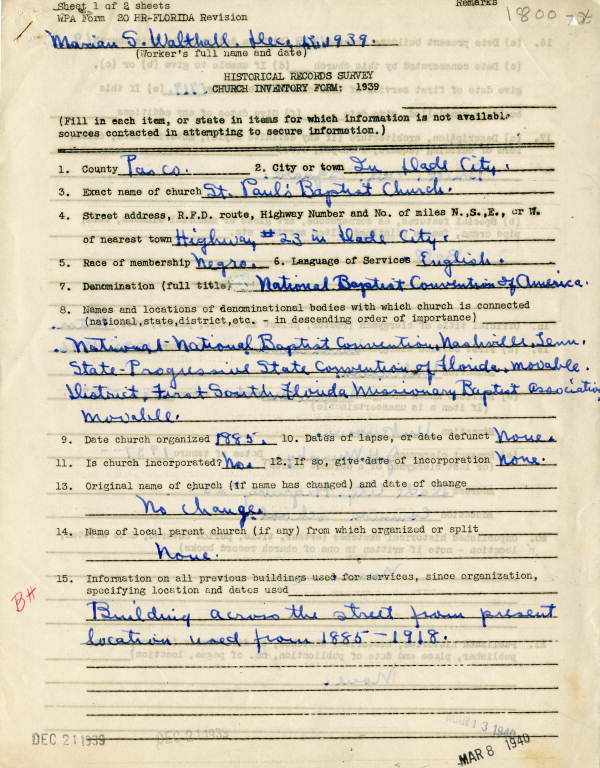 Sheet 1 of 2 sheets
Remarks
WPA Form 20 HR-FLORIDA Revision
1800
Marian S. Walthall, Dec. 1939.
(Worker's full name and date)
HISTORICAL RECORDS SURVEY
CHURCH INVENTORY FORM: 1939
(Fill in each item, or state in items for which information is not available
sources contacted in attempting to secure information.)
1. County Pasco. 2. City or town In Dade City.
3. Exact name of church St. Paul's Baptist Church.
4. Street address, R.F.D. route, Highway Number and No. of miles N.,S.,E., or W.
of nearest town Highway #23 in Dade City.
5. Race of membership Negro. 6. Language of Services English.
7. Denomination (full title) National Baptist Convention of America.
8. Names and locations of denominational bodies with which church is connected
(national,state,district,etc. - in descending order of importance)
National-National Baptist Convention, Nashville, Tenn.
State-Progressive State Convention of Florida, movable.
District, First South Florida Missionary Baptist Association
movable.
9. Date church organized 1885. 10. Dates of lapse, or date defunct None.
11. Is church incorporated? No. 12. If so, give date of incorporation None.
13. Original name of church (if name has changed) and date of change
No change.
14. Name of local parent church (if any) from which organized or split
None.
15. Information on all previous buildings used for services, since organization,
specifying location and dates used
BH
Building across the street from present
location used from 1885-1918.
DEC 21 1939
MAR 13 1940
MAR 8 1940